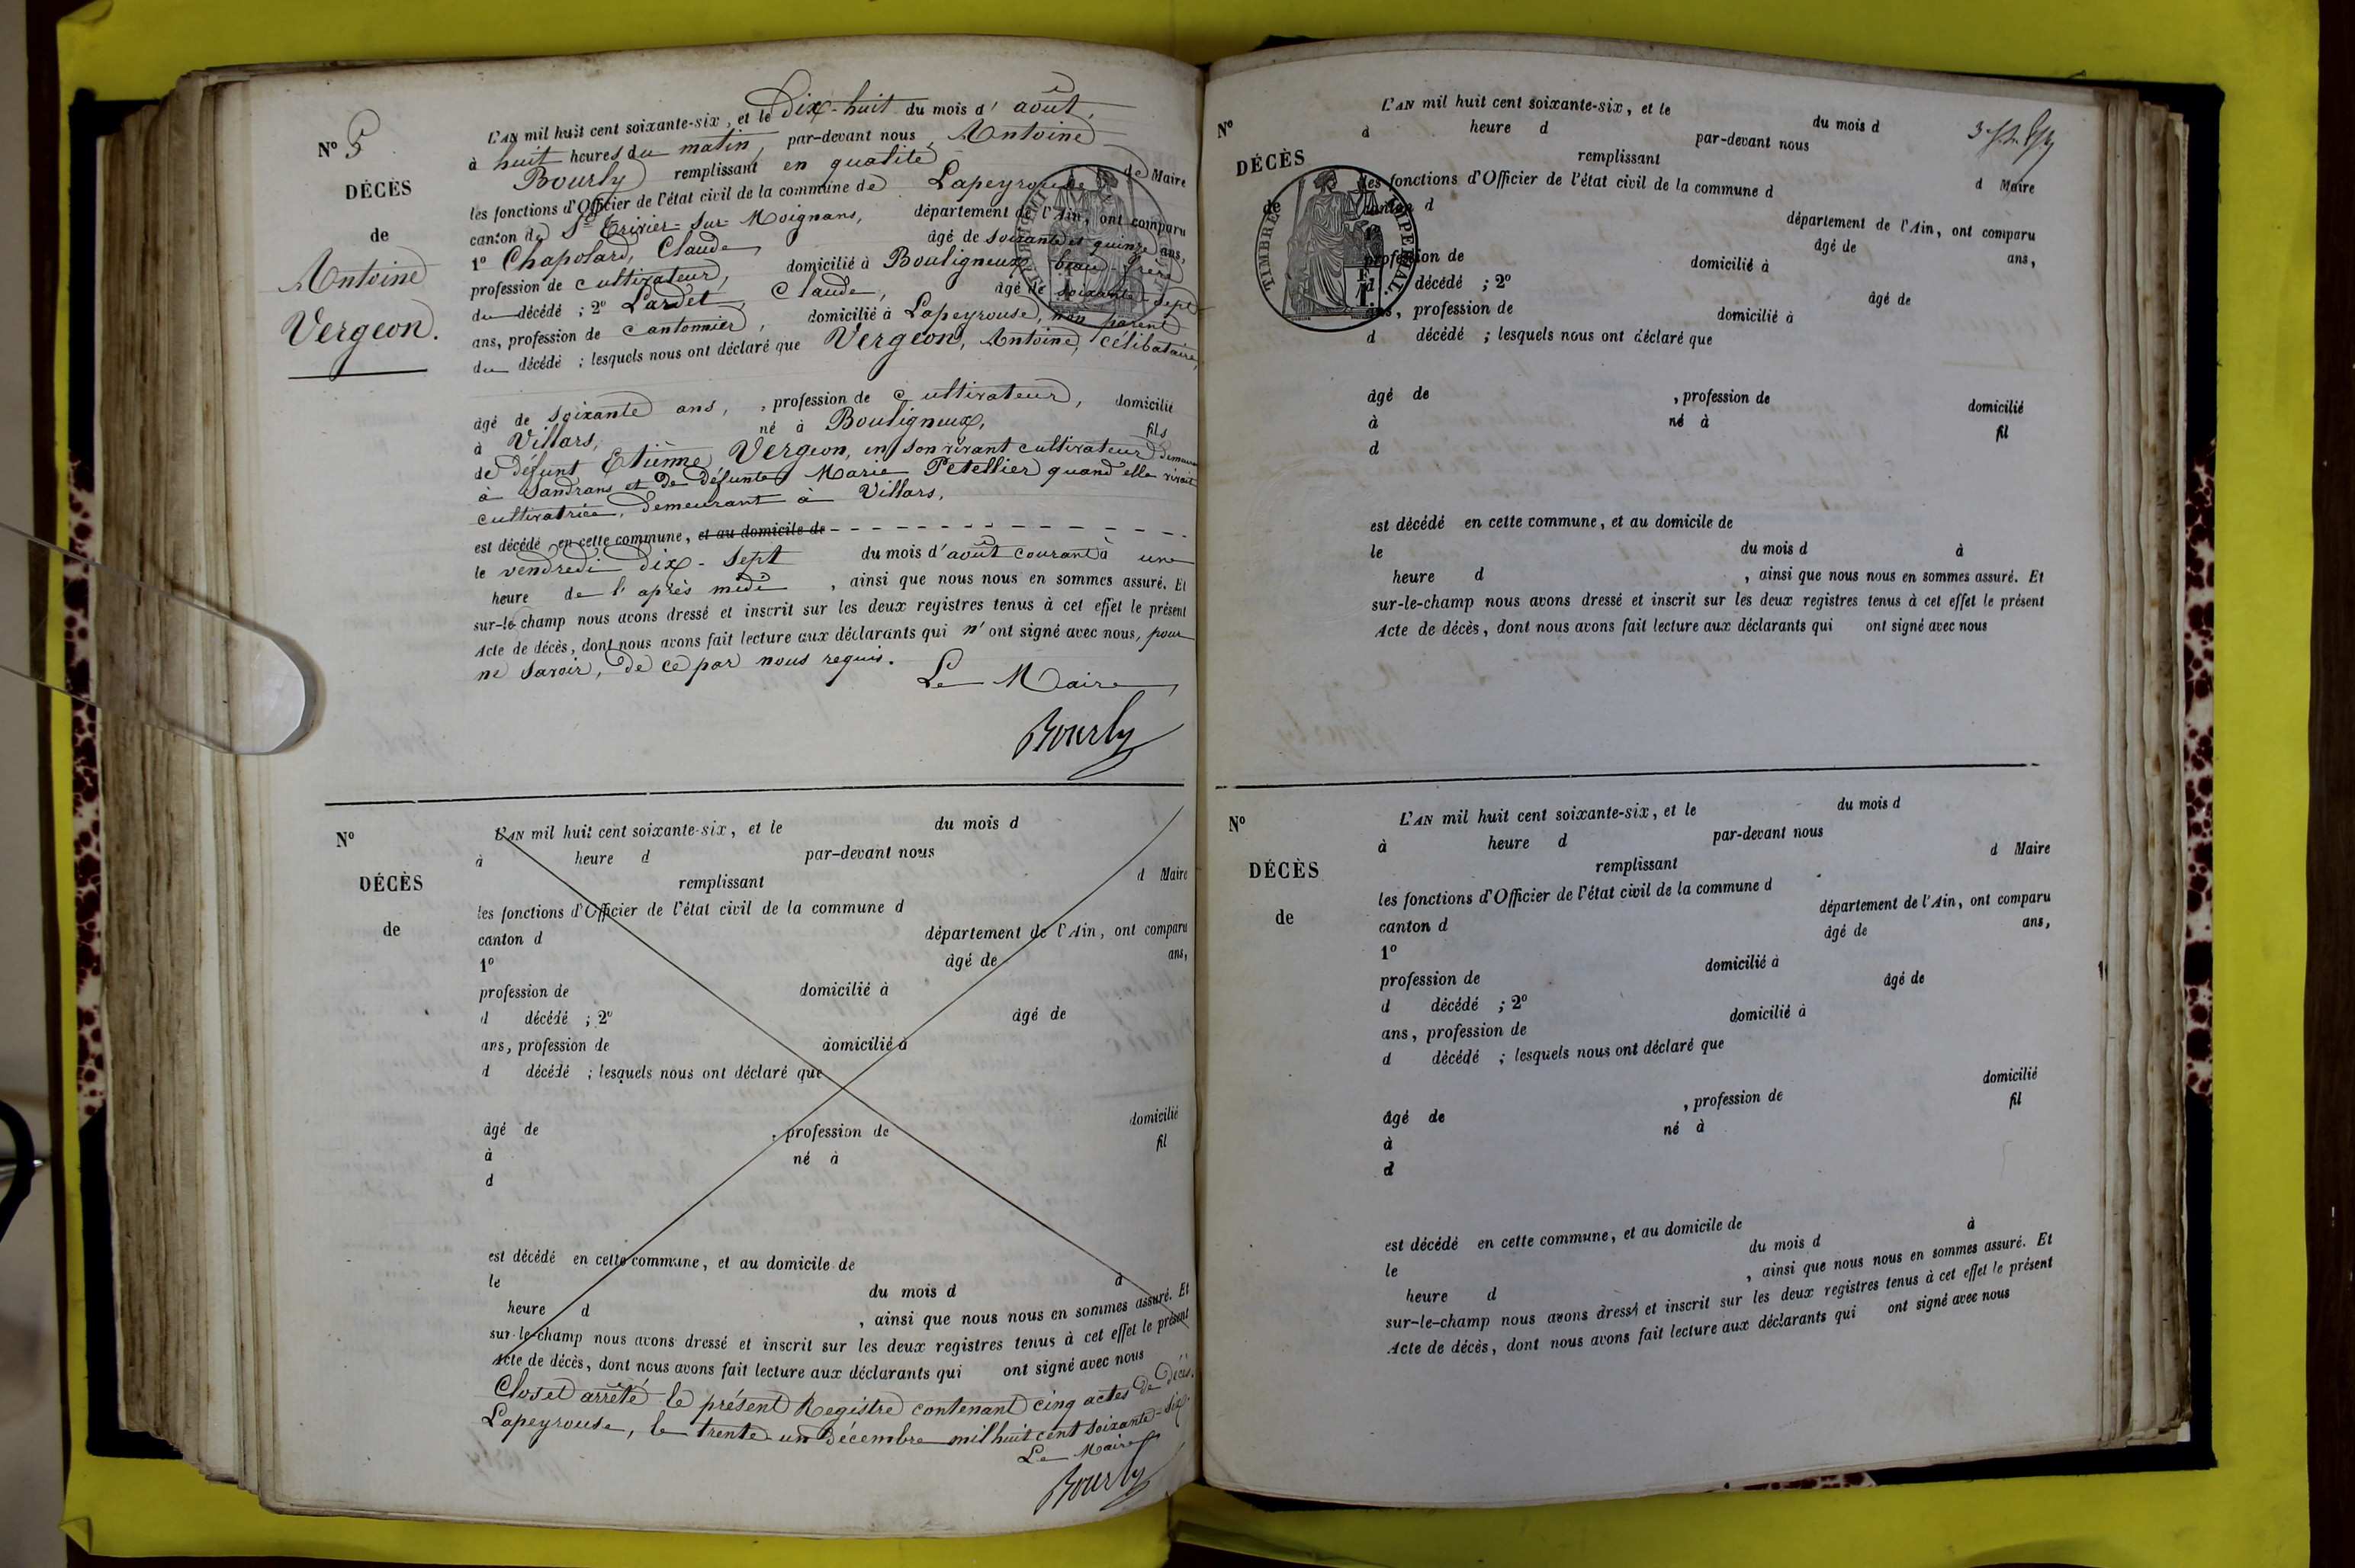 N° 5
DÉCÈS
de
Antoine
Vergeon.
L'AN mil huit cent soixante-six, et le Dix-huit du mois d'août,
à huit heures du matin, par-devant nous, Antoine
Bourly remplissant en qualité de Maire
les fonctions d'Officier de l'état civil de la commune de Lapeyrouse
canton de St Trivier-sur-Moignans, département de l'Ain, ont comparu
1° Chapolard, Claude, âgé de soixante et quinze ans,
profession de cultivateur, domicilié à Bouligneux beau-frère
du décédé ; 2° Lardet, Claude, âgé de soixante-sept
ans, profession de cantonnier, domicilié à Lapeyrouse, non parent
du décédé ; lesquels nous ont déclaré que Vergeon, Antoine, célibataire,
âgé de soixante ans, , profession de cultivateur, domicilié
à Villars, né à Bouligneux, fils
de défunt Etienne Vergeon, en son vivant cultivateur demeurant
à Sandrans et de défunte Marie Petellier quand elle vivait
cultivatrice, demeurant à Villars.
est décédé en cette commune, et au domicile de
le vendredi dix-sept du mois d'août courant à une
heure de l'après midi , ainsi que nous nous en sommes assuré. Et
sur-le-champ nous avons dressé et inscrit sur les deux registres tenus à cet effet le présent
Acte de décès, dont nous avons fait lecture aux déclarants qui n'ont signé avec nous, pour
ne savoir, de ce par nous requis.
Le Maire
Bourly
N°
DÉCÈS
de
L'AN mil huit cent soixante-six, et le du mois d
à heure d par-devant nous
remplissant d Maire
les fonctions d'Officier de l'état civil de la commune d
canton d département de l'Ain, ont comparu
1° âgé de ans,
profession de domicilié à
d décédé ; 2° âgé de
ans, profession de domicilié à
d décédé ; lesquels nous ont déclaré que
âgé de , profession de domicilié
à né à fil
d
est décédé en cette commune, et au domicile de
le du mois d à
heure d , ainsi que nous nous en sommes assuré. Et
sur-le-champ nous avons dressé et inscrit sur les deux registres tenus à cet effet le présent
Acte de décès, dont nous avons fait lecture aux déclarants qui ont signé avec nous
Clos et arrêté le présent Registre contenant cinq actes de décès.
Lapeyrouse, le trente un Décembre mil huit cent soixante-six.
Le Maire
Bourly
N°
DÉCÈS
de
TIMBRE IMPÉRIAL
L'AN mil huit cent soixante-six, et le du mois d
à heure d par-devant nous
remplissant d Maire
les fonctions d'Officier de l'état civil de la commune d
canton d département de l'Ain, ont comparu
âgé de ans,
profession de domicilié à
d décédé ; 2° âgé de
ans, profession de domicilié à
d décédé ; lesquels nous ont déclaré que
âgé de , profession de domicilié
à né à fil
d
est décédé en cette commune, et au domicile de
le du mois d à
heure d , ainsi que nous nous en sommes assuré. Et
sur-le-champ nous avons dressé et inscrit sur les deux registres tenus à cet effet le présent
Acte de décès, dont nous avons fait lecture aux déclarants qui ont signé avec nous
N°
DÉCÈS
de
L'AN mil huit cent soixante-six, et le du mois d
à heure d par-devant nous
remplissant d Maire
les fonctions d'Officier de l'état civil de la commune d
canton d département de l'Ain, ont comparu
1° âgé de ans,
profession de domicilié à
d décédé ; 2° âgé de
ans, profession de domicilié à
d décédé ; lesquels nous ont déclaré que
âgé de , profession de domicilié
à né à fil
d
est décédé en cette commune, et au domicile de
le du mois d à
heure d , ainsi que nous nous en sommes assuré. Et
sur-le-champ nous avons dressé et inscrit sur les deux registres tenus à cet effet le présent
Acte de décès, dont nous avons fait lecture aux déclarants qui ont signé avec nous